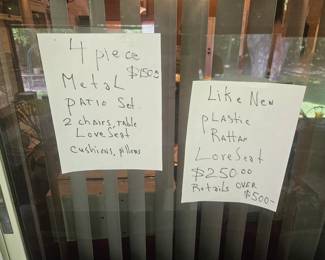 4 piece
$150.00
Metal
Patio Set
2 chairs, table
LoveSeat
cushions, pillows
Like New
plastic
Rattan
LoveSeat
$250.00
Retails over
$500-